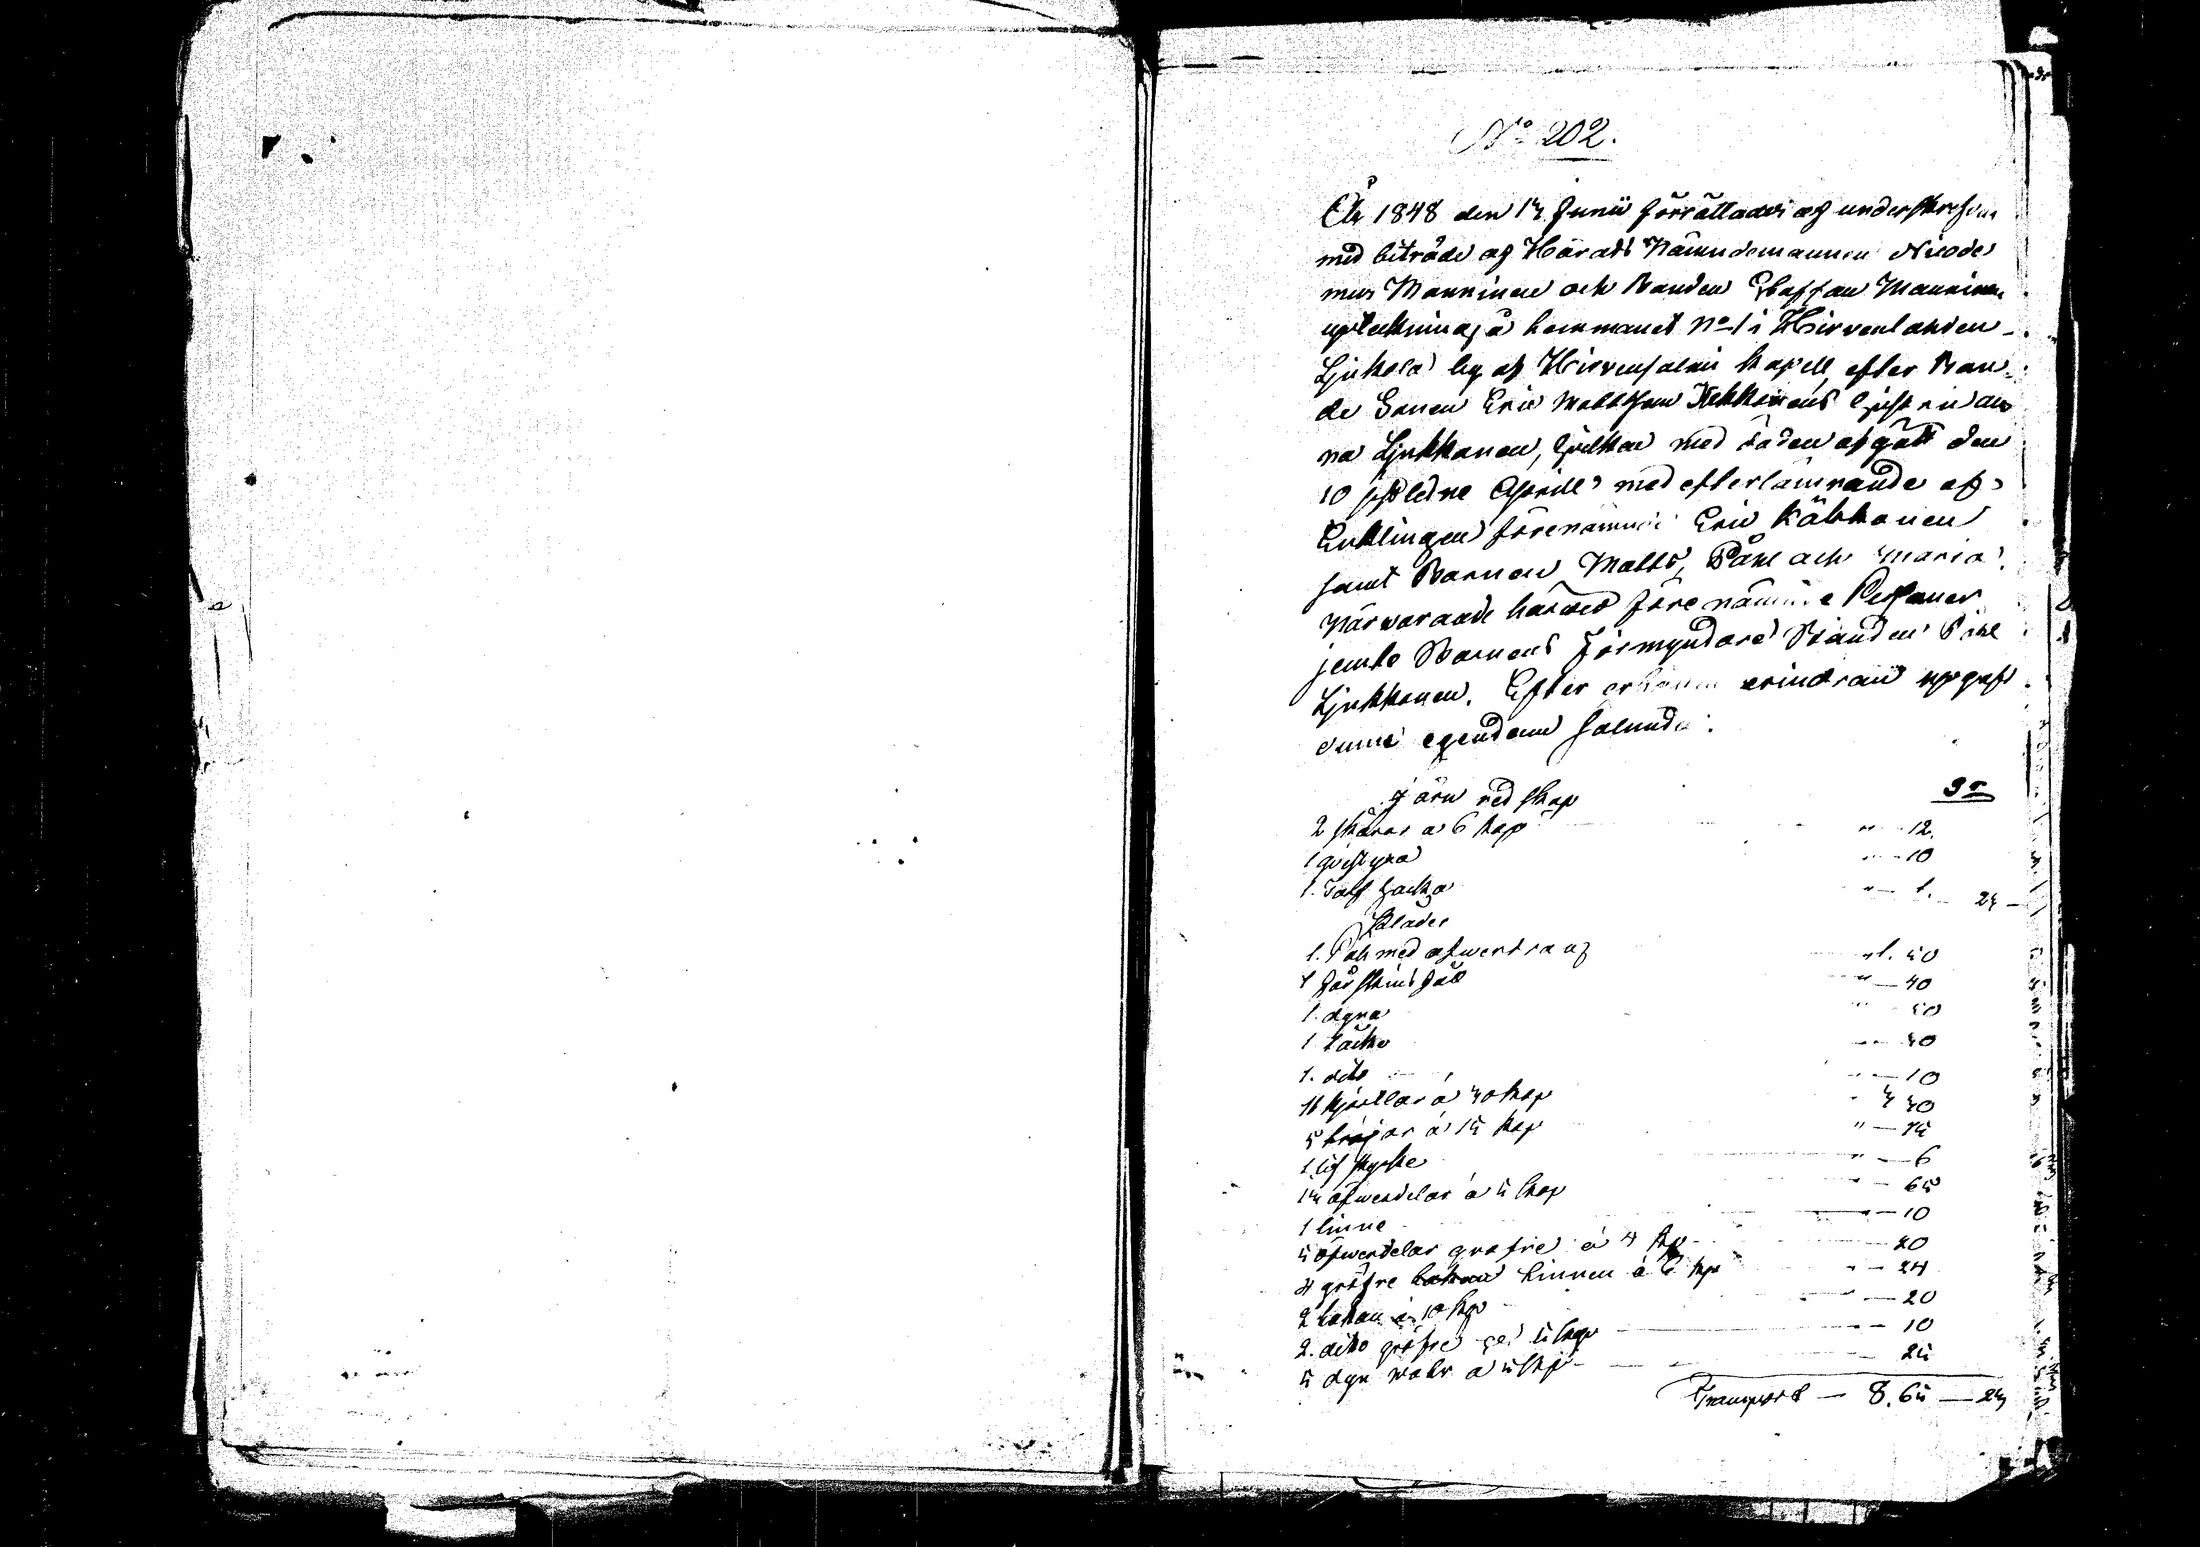 No 202.
År 1848 den 13 Junii förrättades af underskrefven
med biträde af Härads Nämndemannen Nicode
mus Manninen och Bonden Staffan Manninen
upteckning på hemmanet No 1 i Hirvenlahden
Ljukola by af Hirvensalmi kapell, efter Bon-
de Sonen Eric Mattsson Kekkonens hustru An
na Ljukkonen, hvilken med döden afgått den
10 sistledne Aprill med efterlämnande af
Enklingen förenämnde Eric Käkkonen
samt Barnen Matts, Påhl och Maria.
Närvarande härvid förenämnde Personer
jemte Barnens Förmyndare Bonden Påhl
Ljukkonen. Efter erindran uppgafs
denne egendom salunda:
Järn redskap Sr
2 skäror a 6 kop " 12.
1 " - 10
1. hacka " - 1. 23 -
Kläder
1. med 1. 50
1 fårskins fäll " - 40
1. dyna 50
1 täcke 30
1. dito " - 10
11 kjortlar á 30 kop 3 30
5 tröjor á 15 kop " - 75
1 lif stycke " - 6
13 öfwerdelar á 5 kop " - 65
1 linne - 10
5 öfwerdelar gröfre á 4 kop 20
4 gröfre linnen á 6 kop " - 24
2 lakan á 10 kop " - 20
2. dito gröfre 5 kop - 10
5 dyn á 5 kop - 25
Transport - 8. 65 - 23